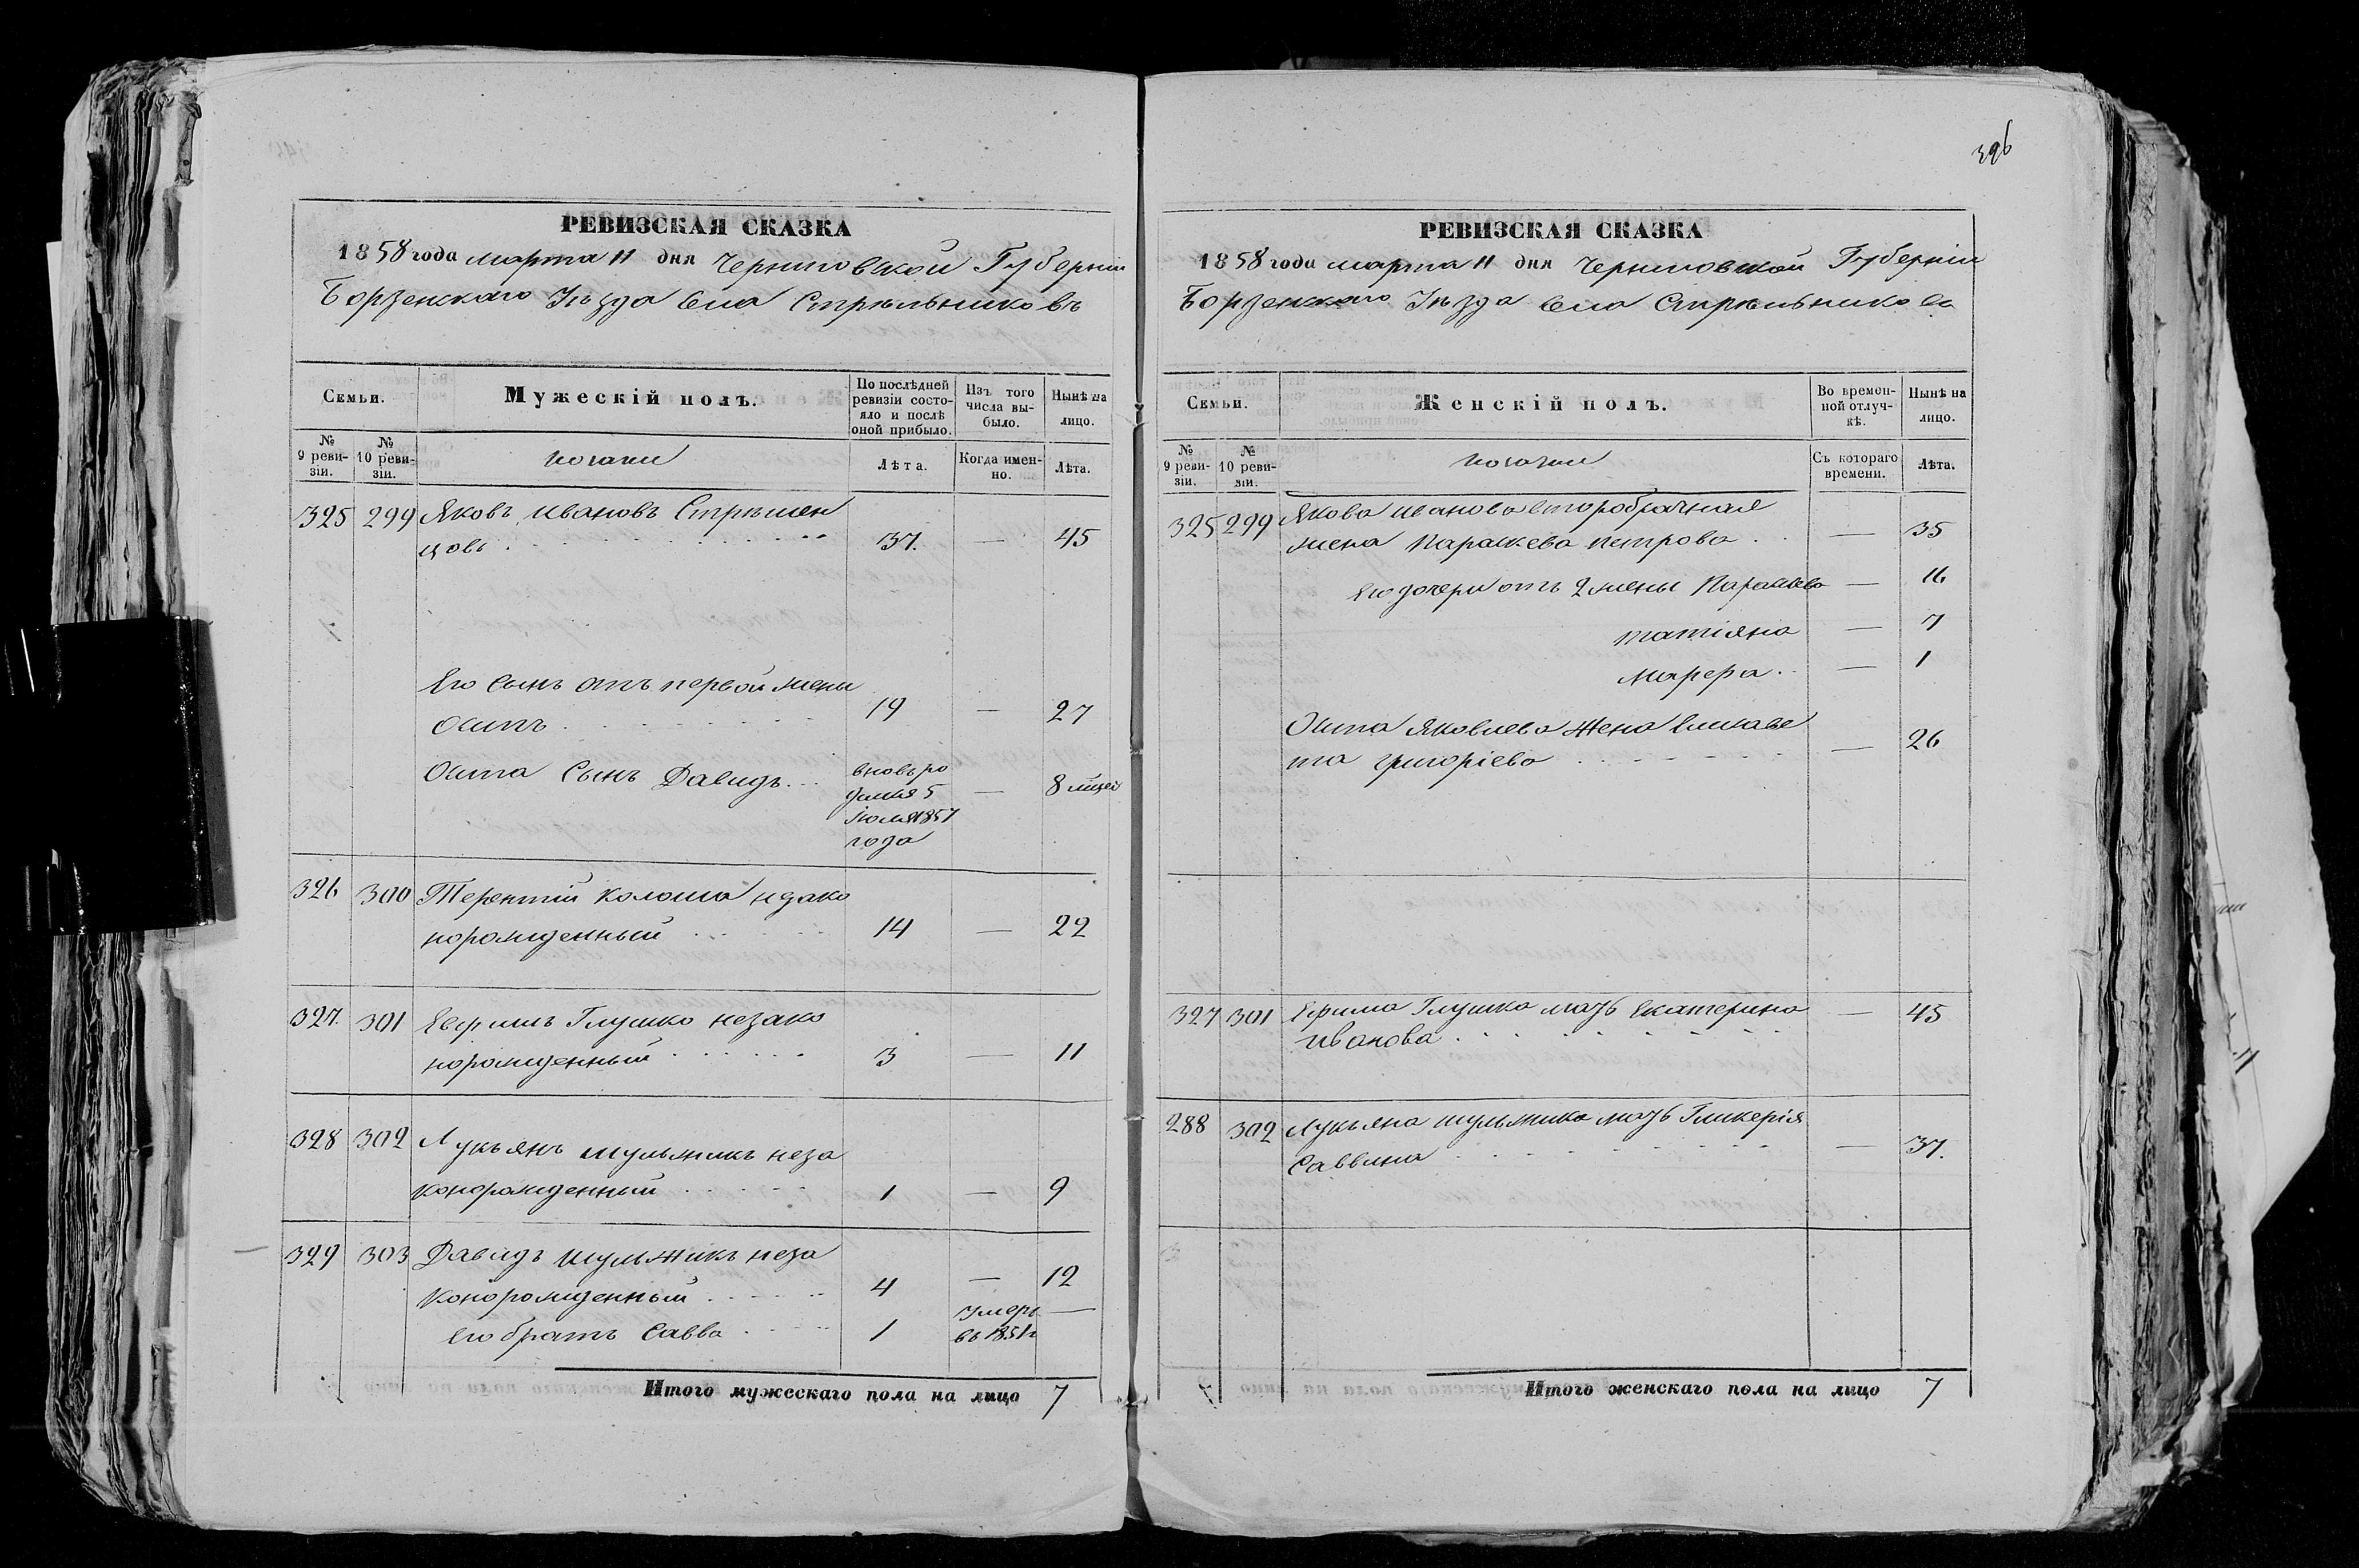 РЕВИЗСКАЯ СКАЗКА
1858 года марта 11 дня Черниговской Губерніи
Борзенскаго Уѣзда села Стрѣльниковъ
Семьи.
Мужескій полъ.
По послѣдней ревизіи состояло и послѣ оной прибыло.
Изъ того числа выбыло.
Нынѣ на лицо.
№ 9 ревизіи.
№ 10 ревизіи.
козаки
Лѣта.
Когда именно.
Лѣта.
325 299 Яковъ Ивановъ
цовъ 37. — 45
Его сынъ отъ первой жены
Осипъ 19 — 27
Осипа сынъ Давидъ вновь ро
дился 5 — 8 мѣсяц
Іюля 1857
года
326 300 Терентій Колоша незако
норожденный 14 — 22
327. 301 Евфимъ Глушко незако
норожденный 3 — 11
328 302 Лукьянъ Шульжикъ неза
конорожденный 1 — 9
329 303 Давидъ Шульжикъ неза
конорожденный 4 — 12
Его братъ Савва 1 Умеръ —
въ 1851 г
Итого мужескаго пола на лицо 7
396
РЕВИЗСКАЯ СКАЗКА
1858 года марта 11 дня Черниговской Губерніи
Борзенскаго Уѣзда села Стрѣльниковъ
Семьи.
Женскій полъ.
Во временной отлучкѣ.
Нынѣ на лицо.
№ 9 ревизіи.
№ 10 ревизіи.
козачки
Съ котораго времени.
Лѣта.
325 299 Якова Иванова второбрачная
жена Параскева Петрова — 35
Его дочери отъ 2 жены Параскева — 16
Татіяна — 7
Марфа — 1
Осипа Яковлева жена Елисаве
та Григоріева — 26
327 301 Ефима Глушка мать Екатерина — 45
Иванова
288 302 Лукьяна Шульжика мать Гликерія
Саввина — 37.
Итого женскаго пола на лицо 7